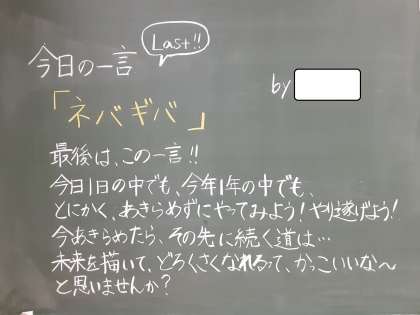 Last!!
今日の一言
by
「ネバギバ」
最後は、この一言!!
今日1日の中でも、今年1年の中でも、
とにかく、あきらめずにやってみよう!やり遂げよう!
今あきらめたら、その先に続く道は…
未来を描いて、どろくさくなれるって、かっこいいな~
と思いませんか?